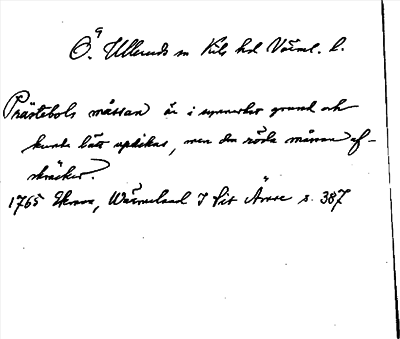 Ö. Ulleruds sn Kils hd Värml. l.
Prästebols mässan är i synnerhet grund och
kunde lätt uptikas, men den röda mässan af-
skräcker.
1765 Ekmas, Wärmeland I sit Ämne s. 387